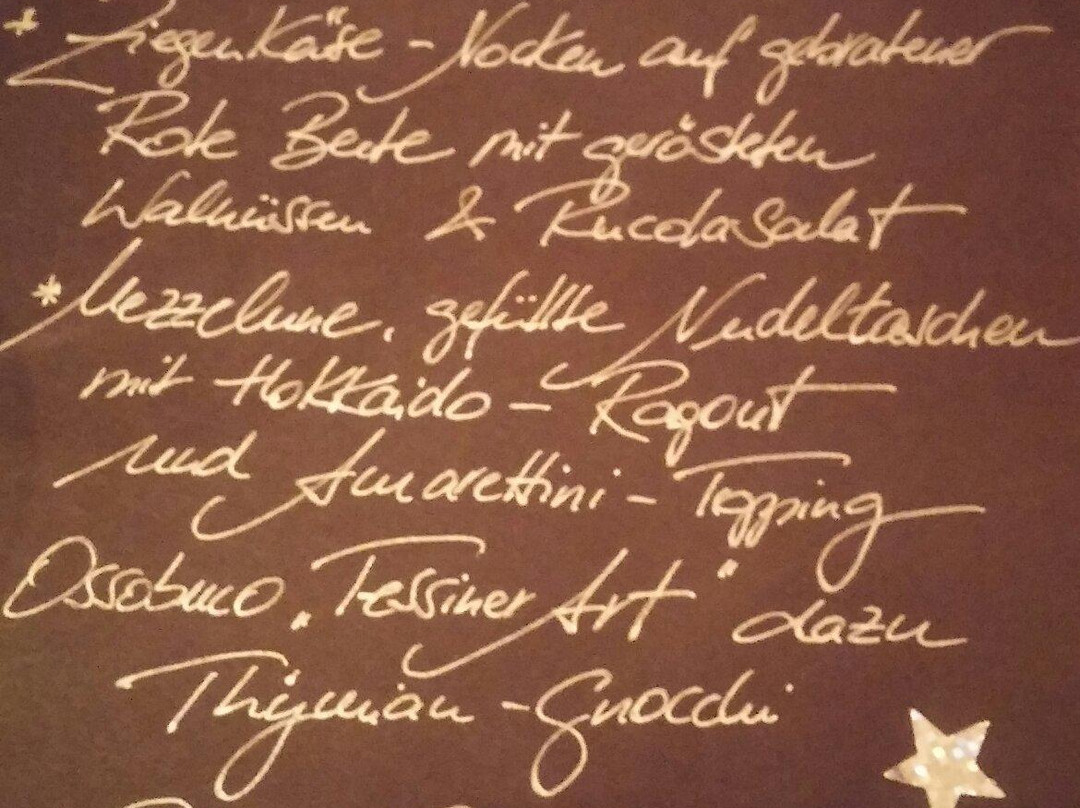 * Ziegenkäse - Nocken auf gebratener
Rote Beete mit gerösteten
Walnüssen & Rucolasalat
* Mezzelune, gefüllte Nudeltaschen
mit Hokkaido - Ragout
und Amarettini - Topping
Ossobuco „Tessiner Art" dazu
Thymian - Gnocchi